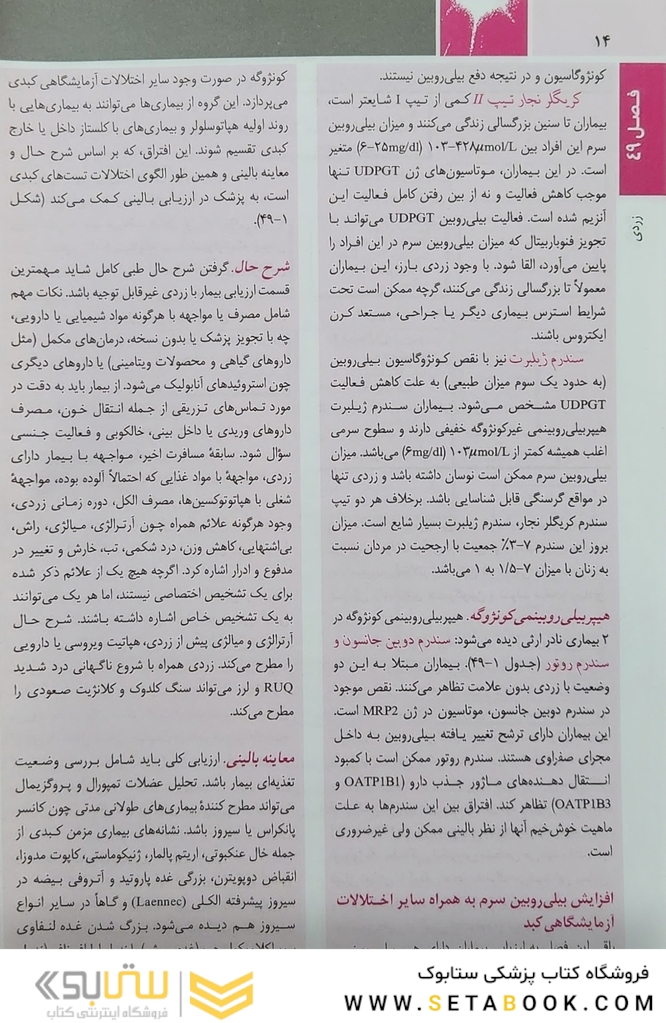 ۱۴
فصل ۴۹
زردی
کونژوگاسیون و در نتیجه دفع بیلی‌روبین نیستند.
کریگلر نجار تیپ II کمی از تیپ I شایعتر است،
بیماران تا سنین بزرگسالی زندگی می‌کنند و میزان بیلی‌روبین
سرم این افراد بین ۱۰۳-۴۲۸μmol/L (۶-۲۵mg/dl) متغیر
است. در این بیماران، موتاسیون‌های ژن UDPGT تنها
موجب کاهش فعالیت و نه از بین رفتن کامل فعالیت این
آنزیم شده است. فعالیت بیلی‌روبین UDPGT می‌تواند با
تجویز فنوباربیتال که میزان بیلی‌روبین سرم در این افراد را
پایین می‌آورد، القا شود. با وجود زردی بارز، این بیماران
معمولاً تا بزرگسالی زندگی می‌کنند، گرچه ممکن است تحت
شرایط استرس بیماری دیگر یا جراحی، مستعد کرن
ایکتروس باشند.
سندرم ژیلبرت نیز با نقص کونژوگاسیون بیلی‌روبین
(به حدود یک سوم میزان طبیعی) به علت کاهش فعالیت
UDPGT مشخص می‌شود. بیماران سندرم ژیلبرت
هیپربیلی‌روبینمی غیرکونژوگه خفیفی دارند و سطوح سرمی
اغلب همیشه کمتر از ۱۰۳μmol/L (۶mg/dl) می‌باشد. میزان
بیلی‌روبین سرم ممکن است نوسان داشته باشد و زردی تنها
در مواقع گرسنگی قابل شناسایی باشد. برخلاف هر دو تیپ
سندرم کریگلر نجار، سندرم ژیلبرت بسیار شایع است. میزان
بروز این سندرم ۷-۳٪ جمعیت با ارجحیت در مردان نسبت
به زنان با میزان ۷-۱/۵ به ۱ می‌باشد.
هیپربیلی‌روبینمی کونژوگه. هیپربیلی‌روبینمی کونژوگه در
۲ بیماری نادر ارثی دیده می‌شود: سندرم دوبین جانسون و
سندرم روتور (جدول ۱-۴۹). بیماران مبتلا به این دو
وضعیت با زردی بدون علامت تظاهر می‌کنند. نقص موجود
در سندرم دوبین جانسون، موتاسیون در ژن MRP2 است.
این بیماران دارای ترشح تغییر یافته بیلی‌روبین به داخل
مجرای صفراوی هستند. سندرم روتور ممکن است با کمبود
انتقال دهنده‌های ماژور جذب دارو (OATP1B1 و
OATP1B3) تظاهر کند. افتراق بین این سندرم‌ها به علت
ماهیت خوش‌خیم آنها از نظر بالینی ممکن ولی غیرضروری
است.
افزایش بیلی‌روبین سرم به همراه سایر اختلالات
آزمایشگاهی کبد
کونژوگه در صورت وجود سایر اختلالات آزمایشگاهی کبدی
می‌پردازد. این گروه از بیماری‌ها می‌توانند به بیماری‌هایی با
روند اولیه هپاتوسلولر و بیماری‌های با کلستاز داخل یا خارج
کبدی تقسیم شوند. این افتراق، که بر اساس شرح حال و
معاینه بالینی و همین طور الگوی اختلالات تست‌های کبدی
است، به پزشک در ارزیابی بالینی کمک می‌کند (شکل
۱-۴۹).
شرح حال. گرفتن شرح حال طبی کامل شاید مهمترین
قسمت ارزیابی بیمار با زردی غیرقابل توجیه باشد. نکات مهم
شامل مصرف یا مواجهه با هرگونه مواد شیمیایی یا دارویی،
چه با تجویز پزشک یا بدون نسخه، درمان‌های مکمل (مثل
داروهای گیاهی و محصولات ویتامینی) یا داروهای دیگری
چون استروئیدهای آنابولیک می‌شود. از بیمار باید به دقت در
مورد تماس‌های تزریقی از جمله انتقال خون، مصرف
داروهای وریدی یا داخل بینی، خالکوبی و فعالیت جنسی
سؤال شود. سابقهٔ مسافرت اخیر، مواجهه با بیمار دارای
زردی، مواجههٔ با مواد غذایی که احتمالاً آلوده بوده، مواجههٔ
شغلی با هپاتوتوکسین‌ها، مصرف الکل، دوره زمانی زردی،
وجود هرگونه علائم همراه چون آرترالژی، میالژی، راش،
بی‌اشتهایی، کاهش وزن، درد شکمی، تب، خارش و تغییر در
مدفوع و ادرار اشاره کرد. اگرچه هیچ یک از علائم ذکر شده
برای یک تشخیص اختصاصی نیستند، اما هر یک می‌توانند
به یک تشخیص خاص اشاره داشته باشند. شرح حال
آرترالژی و میالژی پیش از زردی، هپاتیت ویروسی یا دارویی
را مطرح می‌کند. زردی همراه با شروع ناگهانی درد شدید
RUQ و لرز می‌تواند سنگ کلدوک و کلانژیت صعودی را
مطرح می‌کند.
معاینه بالینی. ارزیابی کلی باید شامل بررسی وضعیت
تغذیه‌ای بیمار باشد. تحلیل عضلات تمپورال و پروگزیمال
می‌تواند مطرح کنندهٔ بیماری‌های طولانی مدتی چون کانسر
پانکراس یا سیروز باشد. نشانه‌های بیماری مزمن کبدی از
جمله خال عنکبوتی، اریتم پالمار، ژنیکوماستی، کاپوت مدوزا،
انقباض دوپویترن، بزرگی غده پاروتید و آتروفی بیضه در
سیروز پیشرفته الکلی (Laennec) و گاهاً در سایر انواع
سیروز هم دیده می‌شود. بزرگ شدن غده لنفاوی
فروشگاه کتاب پزشکی ستابوک
WWW.SETABOOK.COM
ستابوک
فروشگاه اینترنتی کتاب